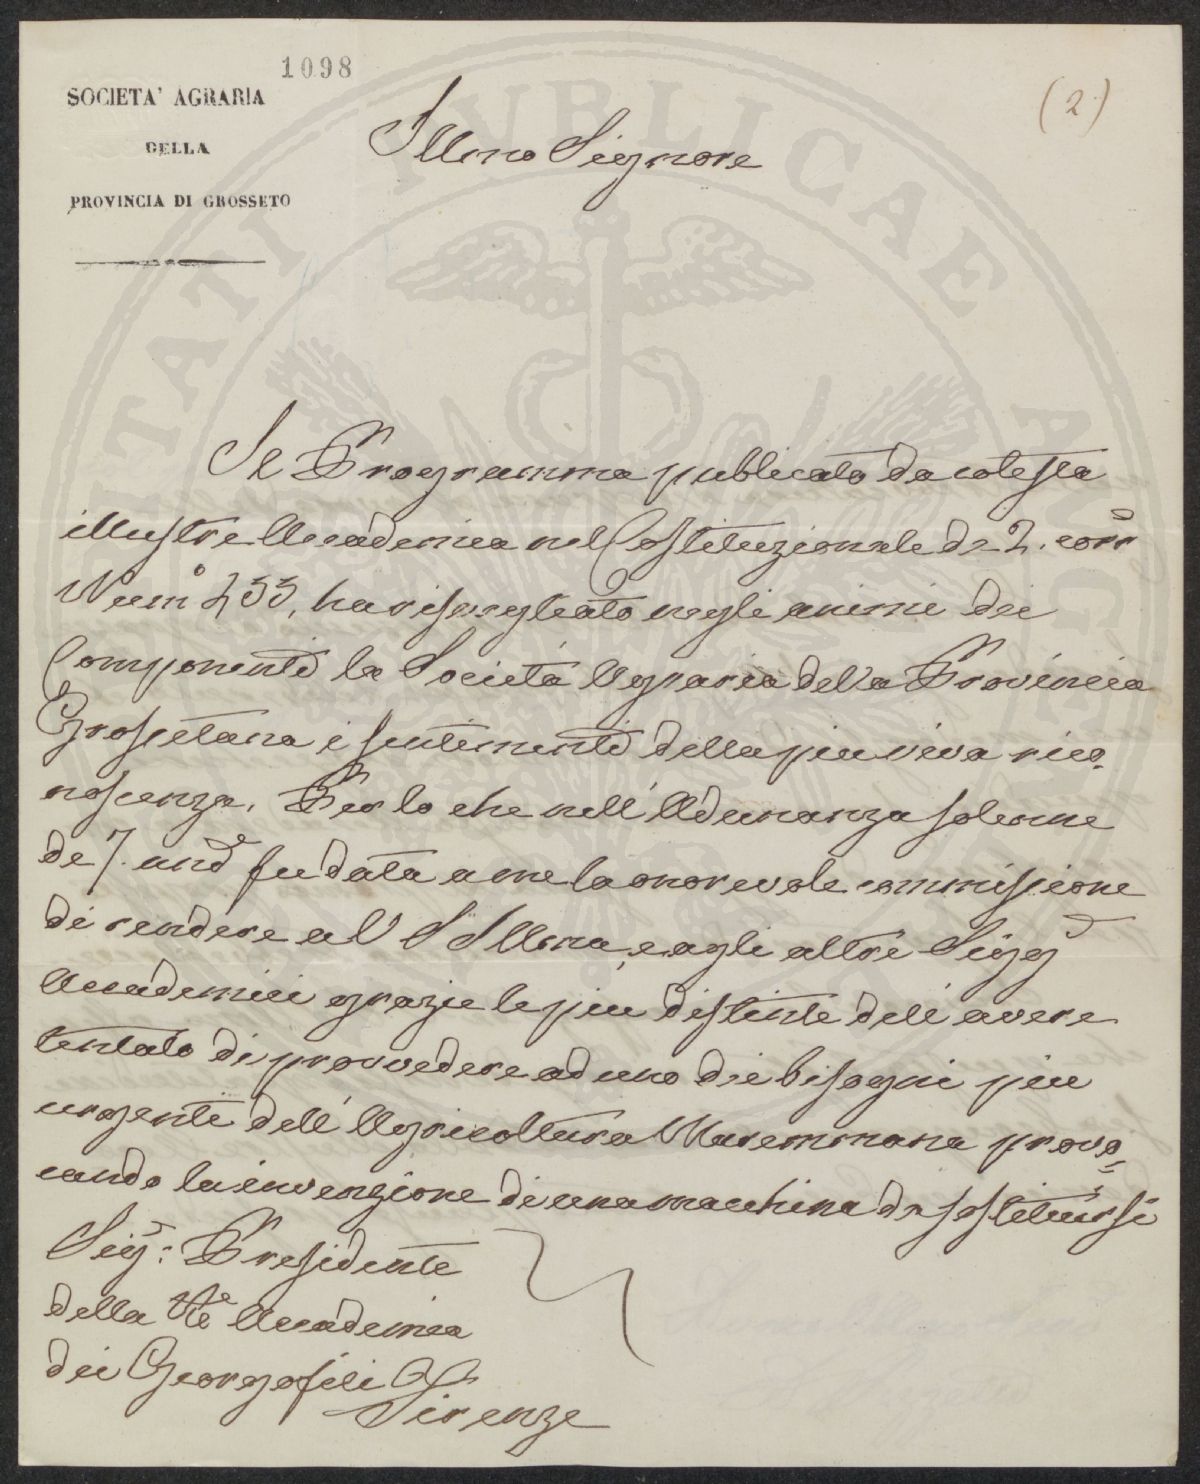 1098
SOCIETA' AGRARIA
DELLA
PROVINCIA DI GROSSETO
(2)
Illmo Signore
Il Programma publicato da cotesta
illustre Accademia nel Costituzionale de 2. corr
Num° 233, ha risvegliato negli animi dei
Componenti la Società Agraria della Provincia
Grossetana i sentimenti della piu viva rico-
noscenza. Per lo che nell'Adunanza solenne
de 7. andᵉ fu data a me la onorevole commissione
di rendere a V S Illma e agli altri Sigg
Accademici grazie le piu distinte dell'avere
tentato di provvedere ad uno dei bisogni piu
urgenti dell'Agricoltura Maremmana provo-
cando la invenzione di una macchina da sostituirsi
Sig: Presidente
della Accademia
dei Georgofili
Firenze
PUBLICAE